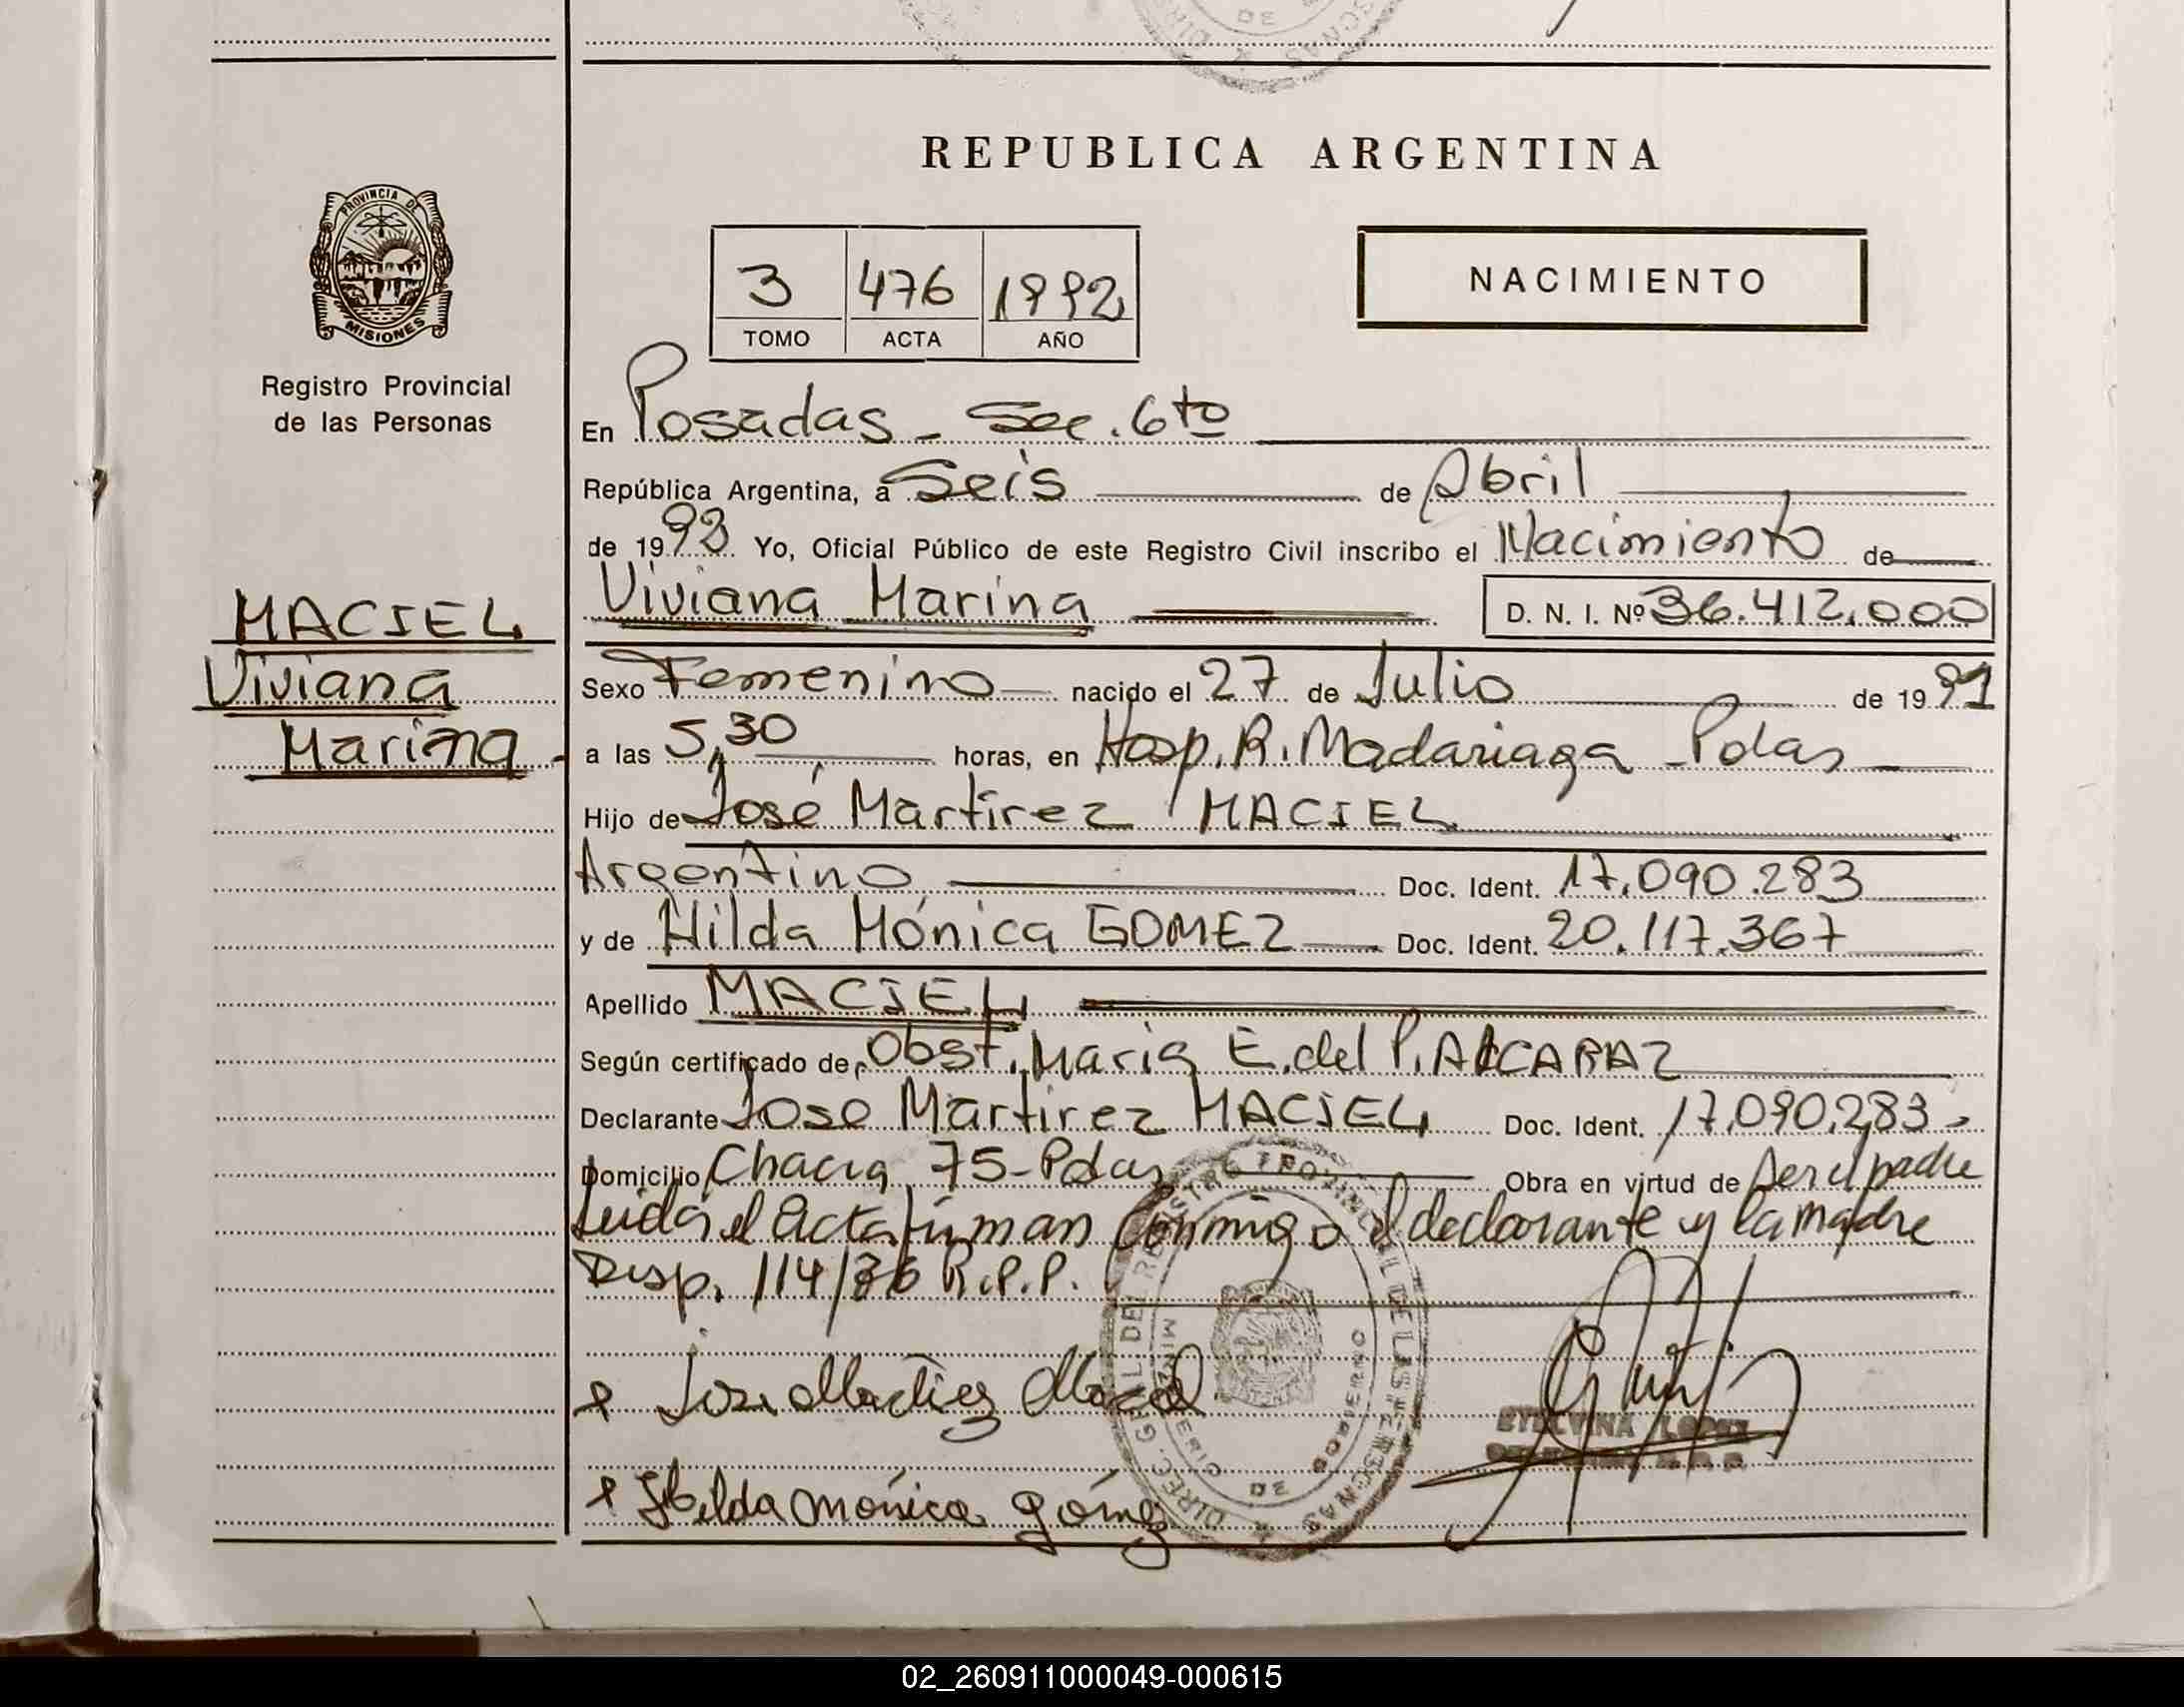 REPUBLICA ARGENTINA
PROVINCIA DE
MISIONES
Registro Provincial
de las Personas
3 476 1992
TOMO ACTA AÑO
NACIMIENTO
En Posadas - Sec. 6to
República Argentina, a Seis de Abril
de 1992 Yo, Oficial Público de este Registro Civil inscribo el Nacimiento de
Viviana Marina D. N. I. Nº 36.412.000
MACIEL
Viviana
Marina
Sexo Femenino nacido el 27 de Julio de 1991
a las 5,30 horas, en Hosp. R. Madariaga - Pdas
Hijo de José Martirez MACIEL
Argentino Doc. Ident. 17.090.283
y de Hilda Mónica GOMEZ Doc. Ident. 20.117.367
Apellido MACIEL
Según certificado de Obst. Maria E. del P. ALCARAZ
Declarante José Martirez MACIEL Doc. Ident. 17.090.283
Domicilio Chacra 75 - Pdas Obra en virtud de ser el padre
Leida el Acta firman conmigo el declarante y la madre
Disp. 114/86 R.P.P.
Jose Martirez Maciel
Hilda Mónica Gómez
ETELVINA LOPEZ
02_260911000049-000615